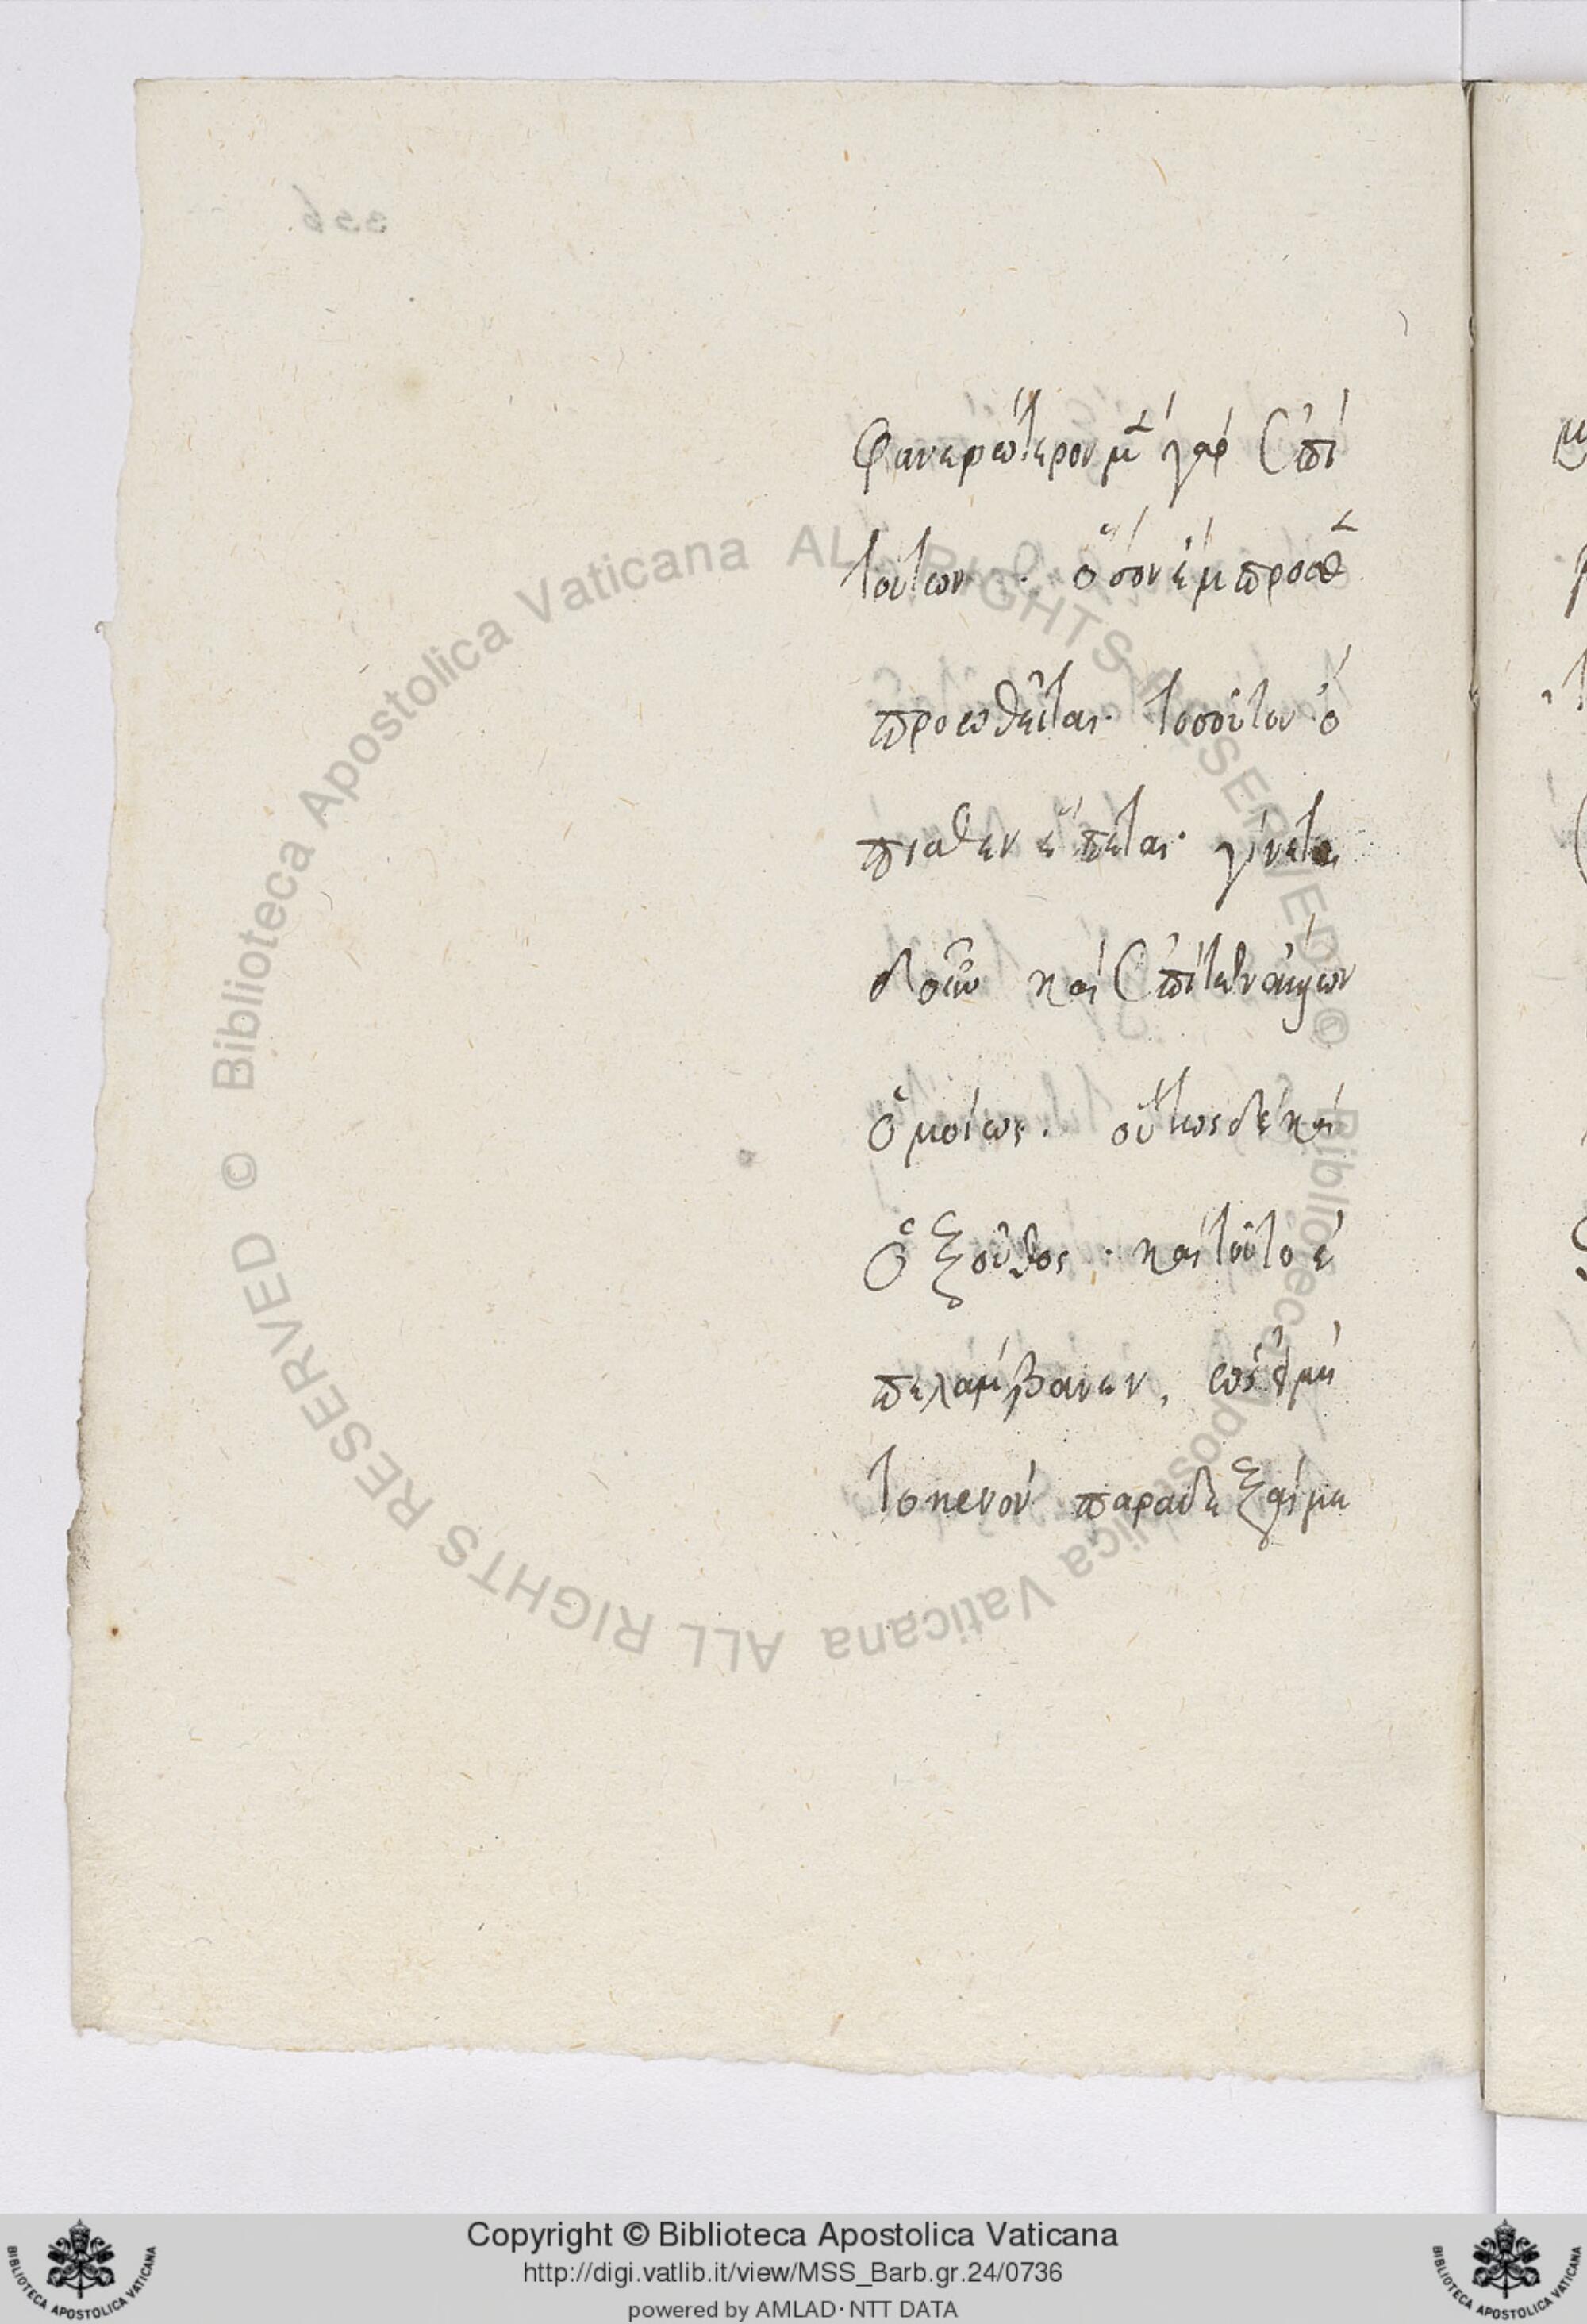 φανερώτερον μὲν γὰρ ἐπὶ
τούτων · ὅσον ἔμπροσθεν
προωθεῖται· τοσοῦτον ὄ
πισθεν ἕπεται· γίνεται
δ' οὖν καὶ ἐπὶ τῶν ἄκρων
ὁμοίως. οὕτως δὲ καὶ
ὁ Ξοῦθος · καὶ τοῦτο ἐ
πελάμβανεν, ὡς εἰ μή
τὸ κενὸν παραδεξαίμε
Copyright © Biblioteca Apostolica Vaticana
http://digi.vatlib.it/view/MSS_Barb.gr.24/0736
powered by AMLAD · NTT DATA
© Biblioteca Apostolica Vaticana ALL RIGHTS RESERVED
© Biblioteca Apostolica Vaticana ALL RIGHTS RESERVED
BIBLIOTECA APOSTOLICA VATICANA
BIBLIOTECA APOSTOLICA VATICANA